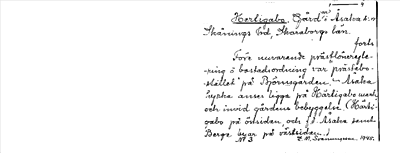 Hertigabo, Gård i Åsaka s:n
Skånings hd, Skaraborgs län.
forts
Före nuvarande prästlönereglering
ö bostadsordning var prästebostället
på Björnsgården, Åsaka
kyrka anses ligga på Härtigabo mark
och invid gårdens bebyggelse (Härtigabo
på östsidan, och f.d Åsaka samt
Bergs byar på västsidan.)
N:3 1945.